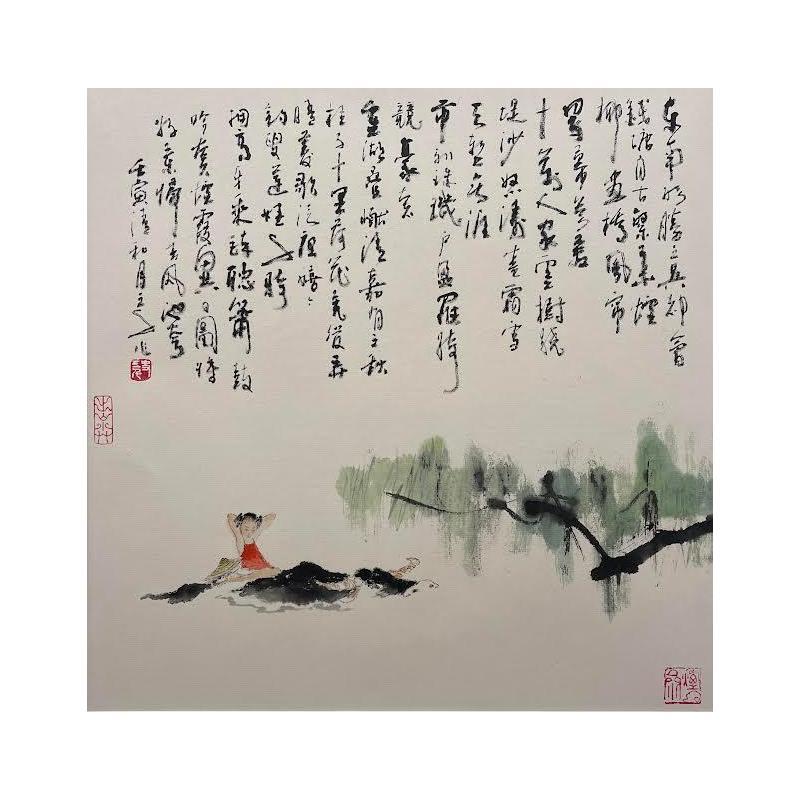 東南形勝三吳都會
錢塘自古繁華煙
柳畫橋風帘
翠幕參差
十萬人家雲樹繞
堤沙怒濤卷霜雪
天塹無涯
市列珠璣戶盈羅綺
競豪奢
重湖疊巘清嘉有三秋
桂子十里荷花羌管弄
晴菱歌泛夜嬉〻
釣叟蓮娃千騎
擁高牙乘醉聽簫鼓
吟賞煙霞異日圖將
好景歸去鳳池誇
壬寅清和月